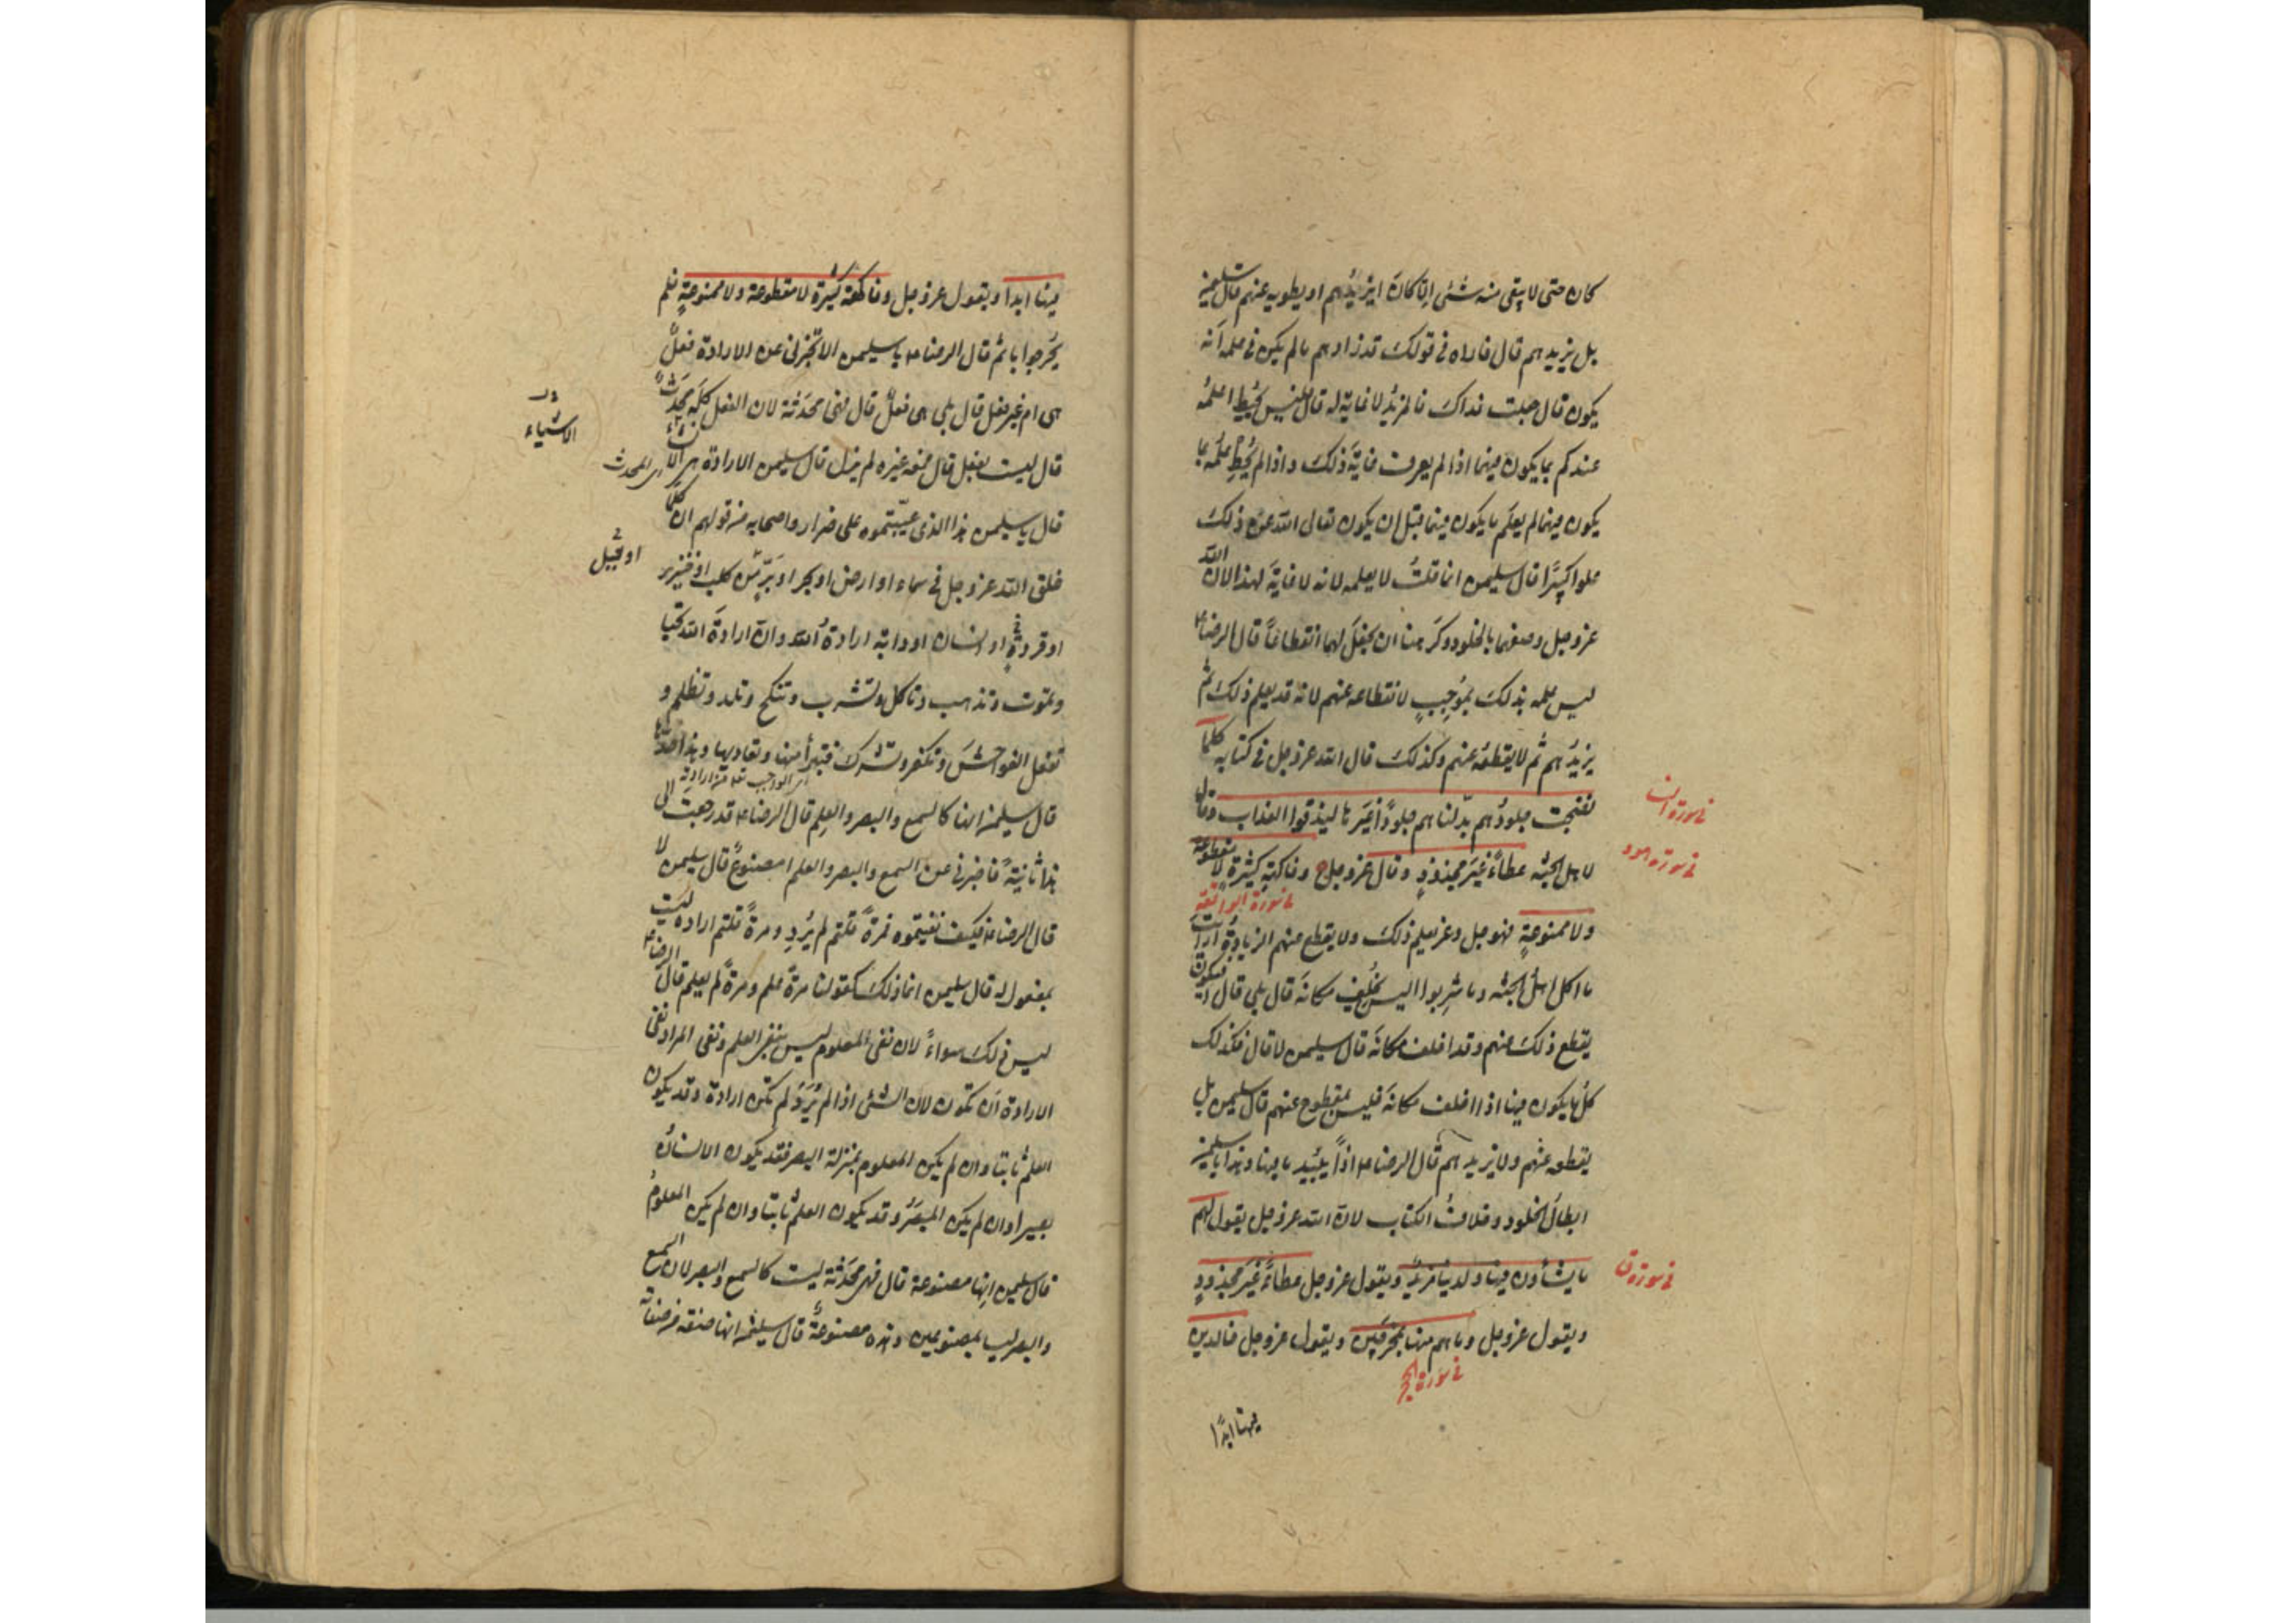 كان حتى لا يبقى منه شئ إلّا كان أيزيدُهم او يطويه عنهم قال سليمن
بل يزيدهم قال فاراه فى قولك قد زادهم ما لم يكن فى علمه أنه
يكون قال جعلت فداك فالمزيدُ لا غاية له قال فليس يُحيط علمُه
عندكم بما يكون فيهما اذا لم يعرف غايةَ ذلك و اذا لم يُحِط علمُه بما
يكون فيهما لم يعلم ما يكون فيهما قبل ان يكون تعالى الله عن ذلك
علوا كبيرًا قال سليمن انما قلتُ لا يعلمه لانه لا غايةَ لهذا لان الله
عزوجل وصفهما بالخلود وكرهنا ان نجعلَ لهما انقطاعاً قال الرضا ع
ليس علمه بذلك بمُوجِبٍ لانقطاعه عنهم لانه قد يعلم ذلك ثم
يزيدُهم ثم لا يقطعُه عنهم وكذلك قال الله عزوجل فى كتابه كلما
نضجت جلودُهم بدّلناهم جلودًا غيرَها ليذوقوا العذاب وقال
فى سورة النسا
لاهل الجنّة عطاءً غيرَ مجذوذٍ وقال عزوجل وفاكهةٍ كثيرةٍ لا مقطوعة
فى سورة هود
فى سورة الواقعة
ولا ممنوعةٍ فهو جل وعز يعلم ذلك ولا يقطع عنهم الزيادةَ أرأيت
ما اكل اهلُ الجنّة وما شربوا اليس يُخلِف مكانَه قال بلى قال أفيكون
يقطع ذلك عنهم وقد اخلف مكانَه قال سليمن لا قال فكذلك
كلُ ما يكون فيها اذا اخلف مكانَه فليس بمقطوع عنهم قال سليمن بلى
يقطعه عنهم ولا يزيدهم قال الرضا ع اذاً يبيد ما فيها وهذا يا سليمن
ابطالُ الخلود وخلافُ الكتاب لان الله عزوجل يقول لهم
ما يشاؤن فيها ولدينا مزيدٌ ويقول عزوجل عطاءً غيرَ مجذوذٍ
فى سورة ق
ويقول عزوجل وما هم منها بمُخرَجين ويقول عزوجل خالدين
فى سورة الحجر
فيها ابدًا
فيها ابدا ويقول عزوجل وفاكهة كثيرة لا مقطوعة ولا ممنوعةٍ فلم
يُحَر جوابا ثم قال الرضا ع يا سليمن الا تخبرنى عن الارادة فعلٌ
هى ام غير فعل قال بلى هى فعلٌ قال فهى محدَثة لان الفعل كلَّه مُحدَثٌ
قال ليست بفعل قال فمعه غيره لم يزل قال سليمن الارادة هى الانشاء
الاشياء
اى المحدث
قال يا سليمن هذا الذى عيّبتموه على ضرار واصحابه من قولهم ان كلَّما
خلق الله عزوجل فى سماء او ارض او بحر او بَرٍّ من كلب او خنزير
او جبل
او قردةٍ او انسان او دابّة ارادةُ الله وانّ ارادةَ الله تحيا
وتموت وتذهب وتاكل وتشرب وتنكح وتلد وتظلم و
تفعل الفواحشَ وتكفر وتشرك فتبرأ منها وتعاديها وهذا حدّها
قال سليمن انها كالسمع والبصر والعلم قال الرضا ع قد رجعتَ الى
هذا ثانيةً فاخبرنى عن السمع والبصر والعلم امصنوعٌ قال سليمن لا
قال الرضا ع فكيف نفيتموه فمرةً قلتم لم يُرِد و مرةً قلتم اراده ليست
بمفعول له قال سليمن انما ذلك كقولنا مرةً علم ومرةً لم يعلم قال الرضا ع
ليس ذلك سواءً لان نفى المعلوم ليس بنفى العلم ونفى المراد نفى
الارادة أن تكون لان الشئ اذا لم يُرَد لم تكن ارادة وقد يكون
العلمُ ثابتا وان لم يكن المعلوم بمنزلة البصر فقد يكون الانسانُ
بصيرا وان لم يكن المبصَرُ وقد يكون العلمُ ثابتا وان لم يكن المعلومُ
قال سليمن إنها مصنوعة قال فهى محدَثة ليست كالسمع والبصر لان السمع
والبصر ليسا بمصنوعين وهذه مصنوعةٌ قال سليمن انها صفة من صفاته